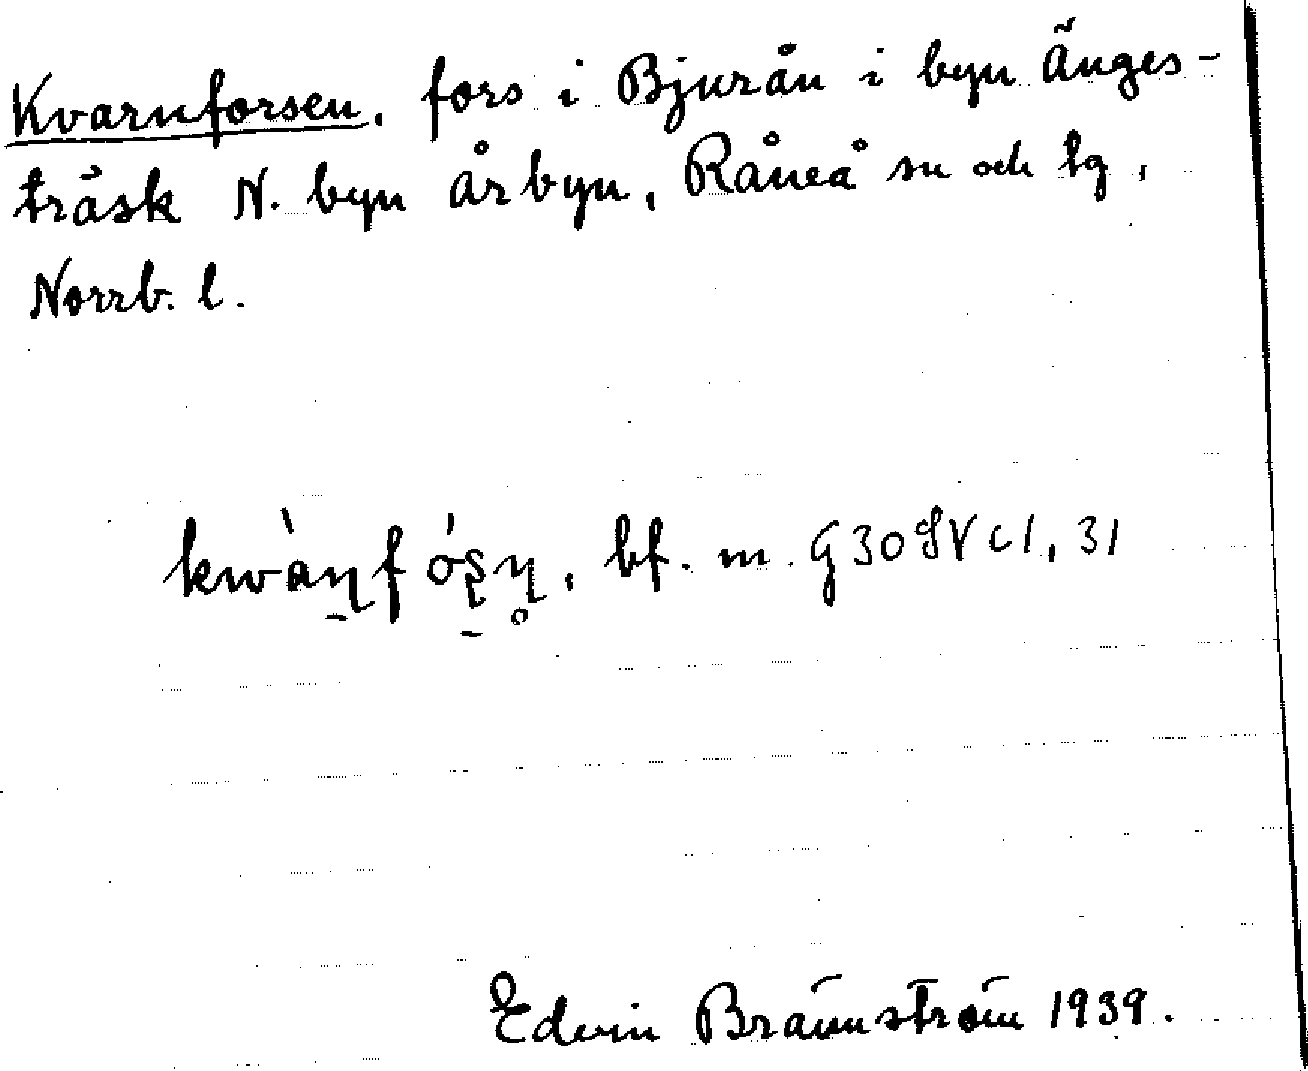 Kvarnforsen, fors i Bjurån i byn Änges-
träsk N. byn Årbyn, Råneå sn och tg,
Norrb. l.
kwàɳfóʂɳ̥, bf. m. G30SVc1, 31
Edvin Brännström 1939.